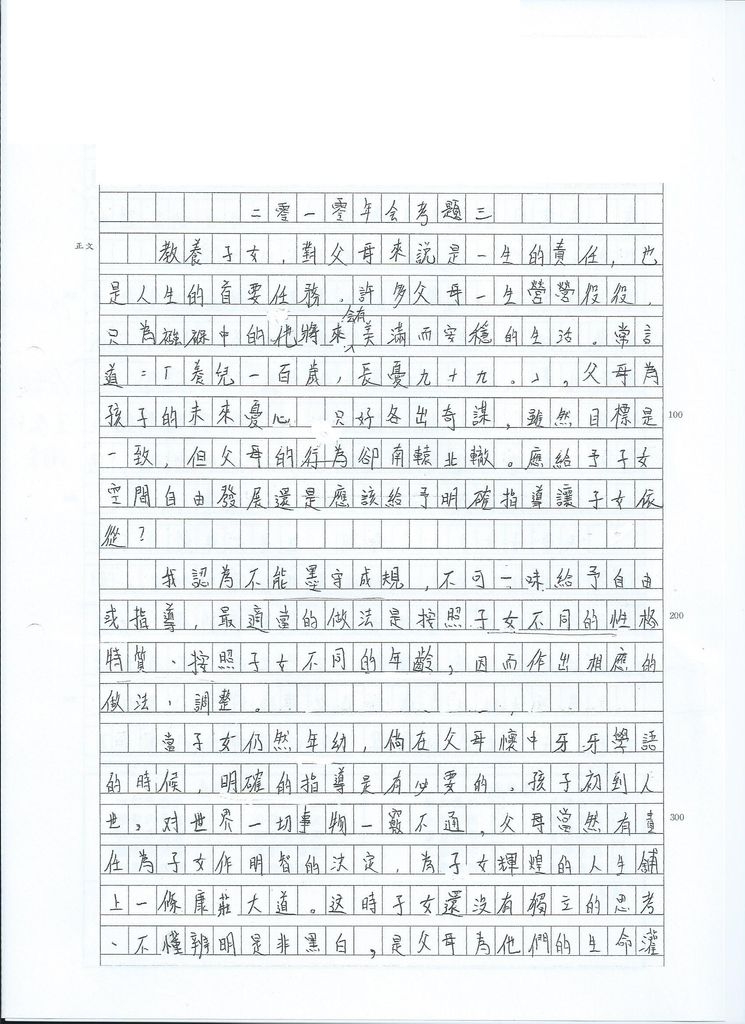 二零一零年会考題三
正文
教養子女，對父母來說是一生的責任，也
是人生的首要任務。許多父母一生營營役役，
只為碌碌中的他將來會有美滿而安穩的生活。常言
道：「養兒一百歲，長憂九十九。」，父母為
孩子的未來憂心　只好各出奇謀，雖然目標是
100
一致，但父母的行為卻南轅北轍。應給予子女
空間自由發展還是應該給予明確指導讓子女依
從？
我認為不能墨守成規，不可一味給予自由
或指導，最適當的做法是按照子女不同的性格
200
特質、按照子女不同的年齡，因而作出相應的
做法、調整。
當子女仍然年幼，倘在父母懷中牙牙學語
的時候，明確的指導是有必要的。孩子初到人
世，对世界一切事物一竅不通，父母當然有責
300
任為子女作明智的決定，為子女輝煌的人生鋪
上一條康莊大道。这時子女還沒有獨立的思考
、不懂辨明是非黑白，是父母為他們的生命灌